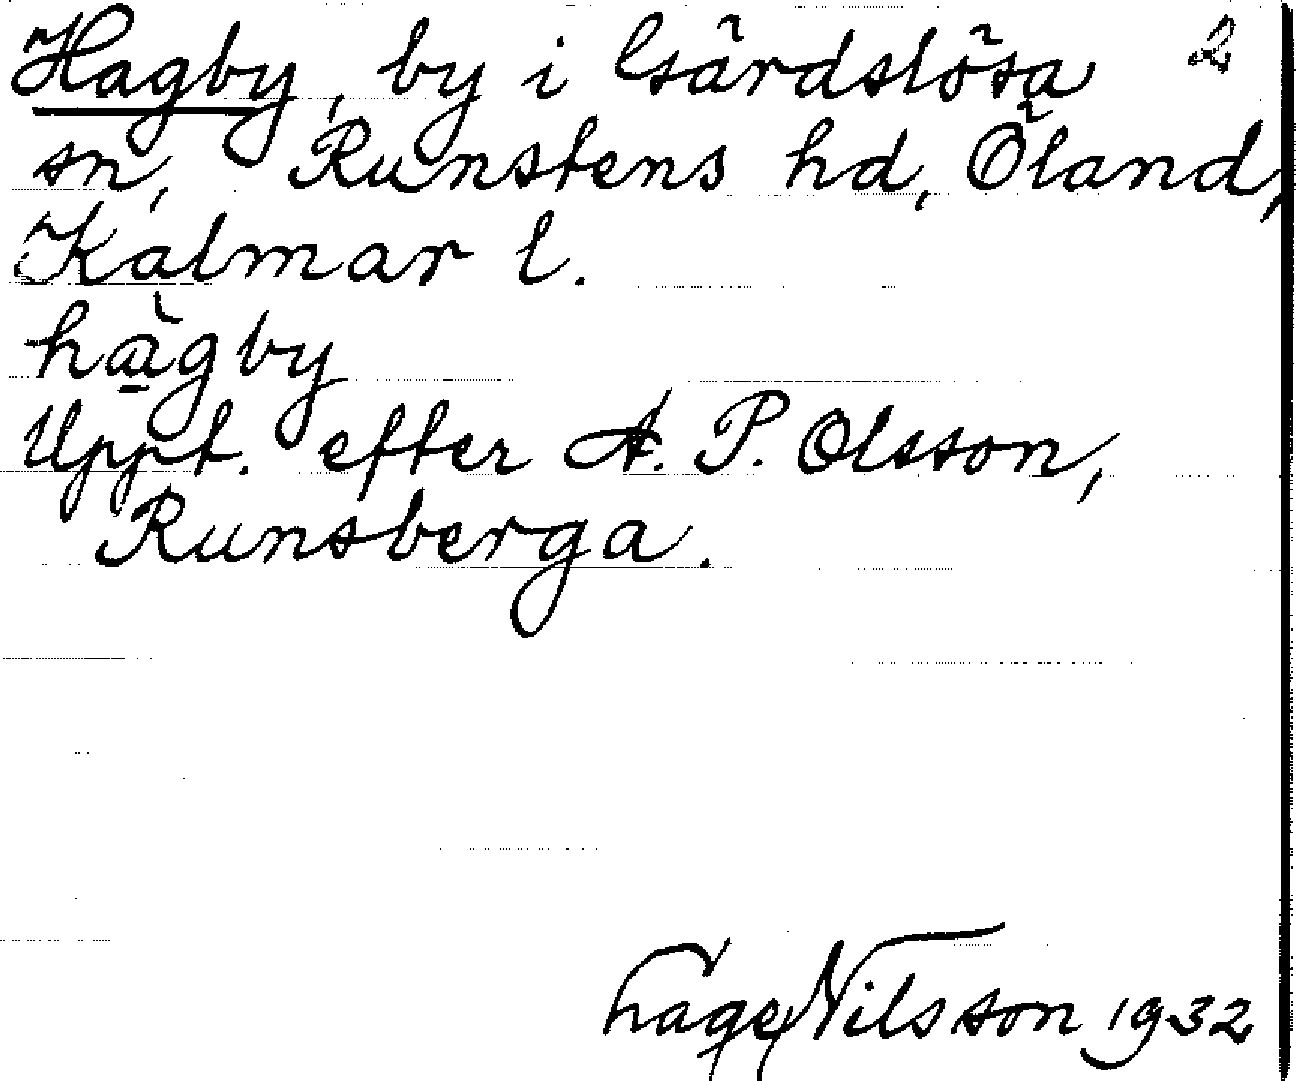 Hagby, by i Gärdslösa 2
sn, Runstens hd, Öland,
Kalmar l.
hà̱gby
Uppt. efter A. P. Olsson,
Runsberga.
Hage Nilsson 1932